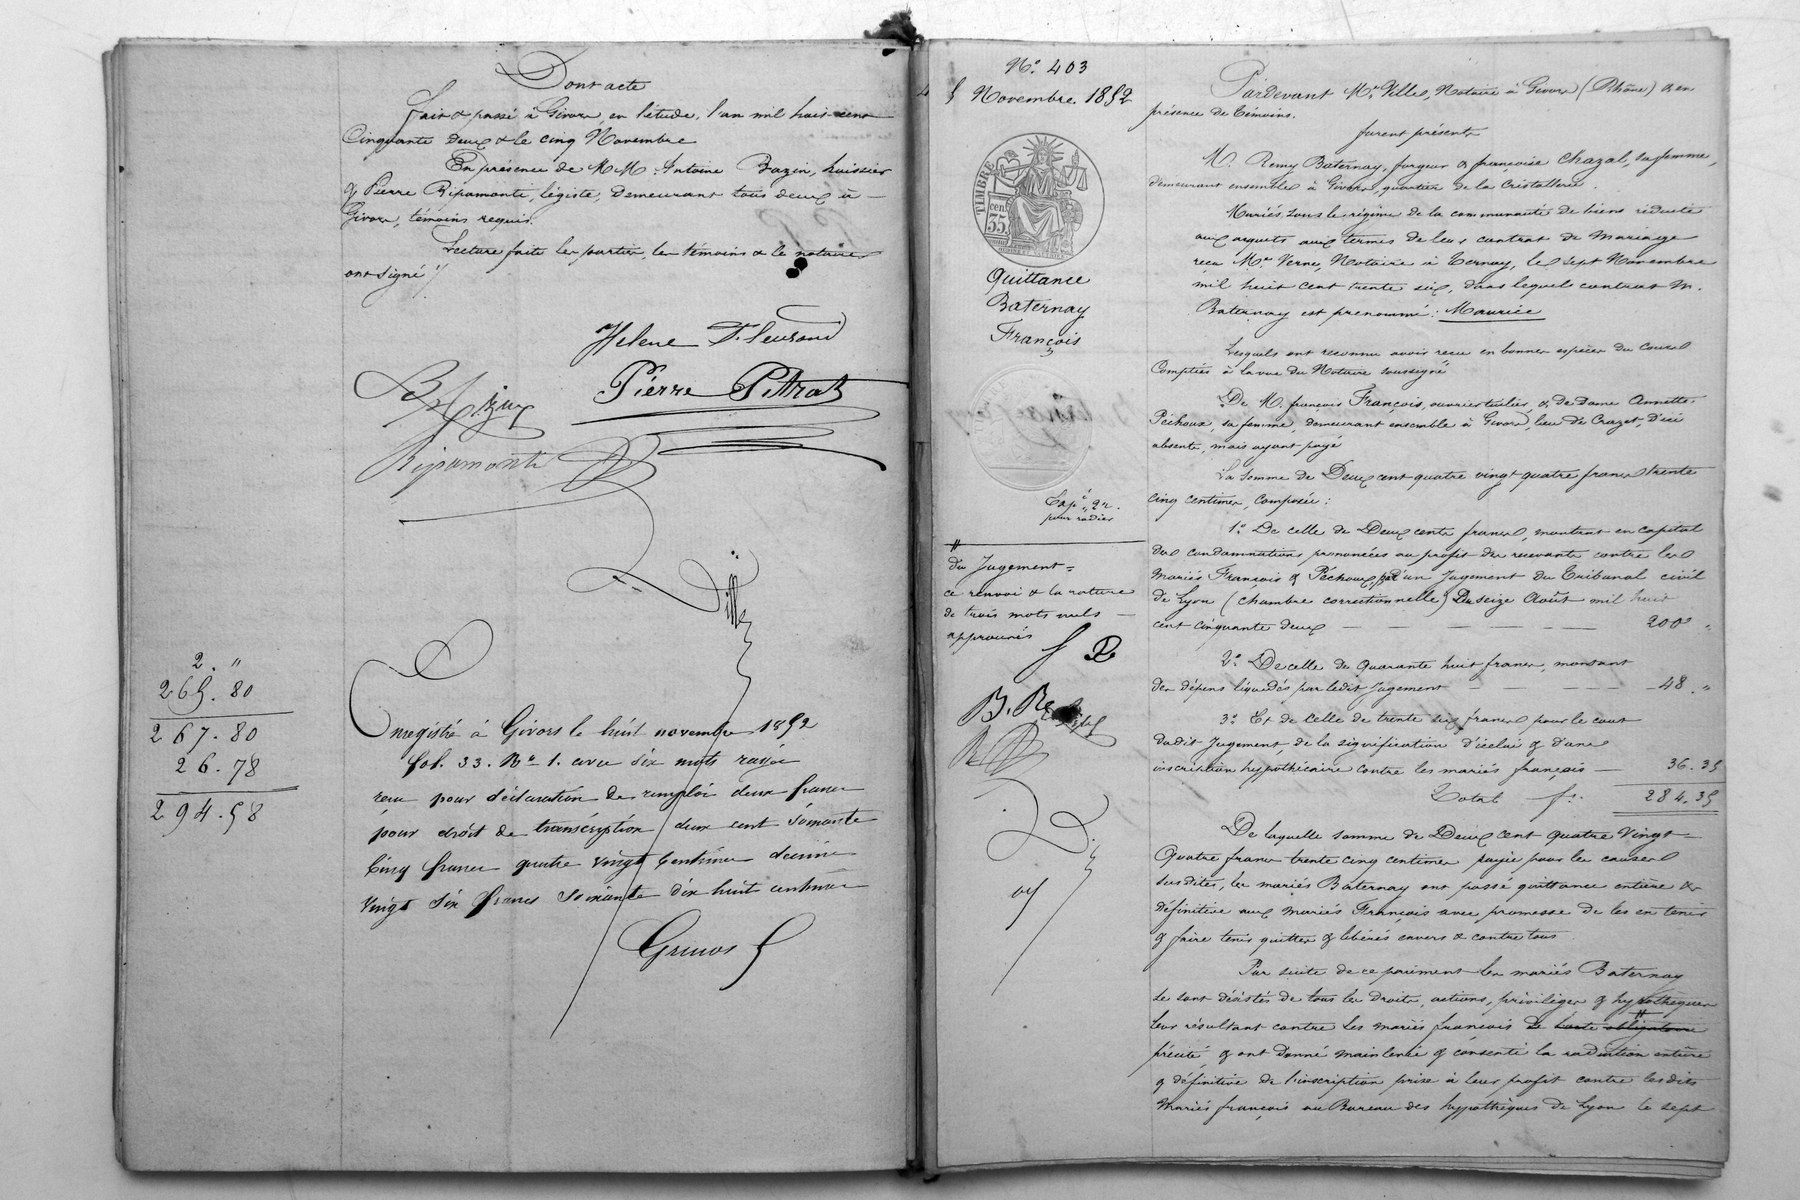 Dont acte
fait & passé à Givors, en l'étude, l'an mil huit cent
Cinquante deux & le cinq Novembre
En présence de M.M. Antoine Bazin, huissier
& Pierre Ripamonte, légiste, demeurant tous deux à
Givors, témoins requis.
Lecture faite les parties, les témoins & le notaire
ont signé
Helene
Pierre Pitrat
Ripamonti
2 . "
265. 80
267. 80
26. 78
294. 58
Enregistré à Givors le huit novembre 1852
fol. 33. Ro 1. avec six mots rayés
reçu pour déclaration de remploi deux francs
pour droit de transcription deux cent soixante
Cinq francs quatre vingt centimes décime
vingt six francs soixante dix huit centimes
No. 403
5 Novembre 1852
TIMBRE
35
Quittance
Baternay
François
pour radier
du Jugement
ce renvoi & la rature
de trois mots nuls
approuvés
Pardevant Me Villes, Notaire à Givors (Rhône) & en
présence de témoins.
furent présents
M. Remy Baternay, forgeur & françoise Chazal, sa femme,
demeurant ensemble à Givors, quartier de la Cristallerie.
Mariés sous le régime de la communauté de biens réduite
aux acquets aux termes de leur contrat de mariage
reçu Me Verne, Notaire à Ternay, le sept Novembre
mil huit cent trente six, dans lequel contrat M.
Baternay est prenommé : Maurice
Lesquels ont reconnu avoir reçu en bonnes espèces du cours
Comptées à la vue du Notaire soussigné
De M. françois François, ouvrier tuilier, & de Dame Annette
Péchoux, sa femme, demeurant ensemble à Givors, lieu de Crozet, d'ici
absents, mais ayant payé
La somme de Deux cent quatre vingt quatre francs trente
cinq centimes, composée :
1o. De celle de Deux cents francs, montant en capital
des condamnations prononcées au profit des recevants contre les
mariés François & Péchoux, par un Jugement du Tribunal civil
de Lyon (chambre correctionnelle) Du seize Août mil huit
cent cinquante deux 200 "
2o. De celle de Quarante huit francs, montant
des dépens liquidés par ledit Jugement 48 . "
3o. Et de celle de trente six francs pour le cout
dudit Jugement, de la signification d'icelui & d'une
inscription hypothécaire contre les mariés françois 36. 35
Total fr. 284. 35
De laquelle somme de Deux cent quatre vingt
Quatre francs trente cinq centimes payée pour les causes
susdites, les mariés Baternay ont passé quittance entière &
définitive aux mariés François avec promesse de les en tenir
& faire tenir quittes & libérés envers & contre tous.
Par suite de ce paiement les mariés Baternay
se sont désistés de tous les droits, actions, privilèges & hypothèques
leur résultant contre les mariés françois de
précité, & ont donné mainlevée & consenti la radiation entière
& définitive de l'inscription prise à leur profit contre lesdits
Mariés françois au Bureau des hypothèques de Lyon le sept